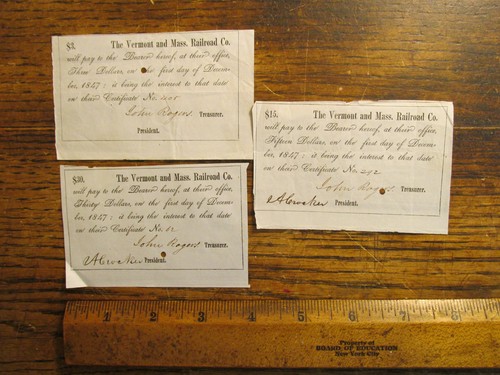 $3. The Vermont and Mass. Railroad Co.
will pay to the Bearer hereof, at their office,
Three Dollars, on the first day of Decem-
ber, 1857: it being the interest to that date
on their Certificate No.
John Rogers Treasurer.
President.
$30. The Vermont and Mass. Railroad Co.
will pay to the Bearer hereof, at their office,
Thirty Dollars, on the first day of Decem-
ber, 1857: it being the interest to that date
on their Certificate No. 12
John Rogers Treasurer.
A Crocker President.
$15. The Vermont and Mass. Railroad Co.
will pay to the Bearer hereof, at their office,
Fifteen Dollars, on the first day of Decem-
ber, 1857: it being the interest to that date
on their Certificate No. 292
John Rogers Treasurer.
A Crocker President.
1 2 3 4 5 6 7 8
Property of
BOARD OF EDUCATION
New York City